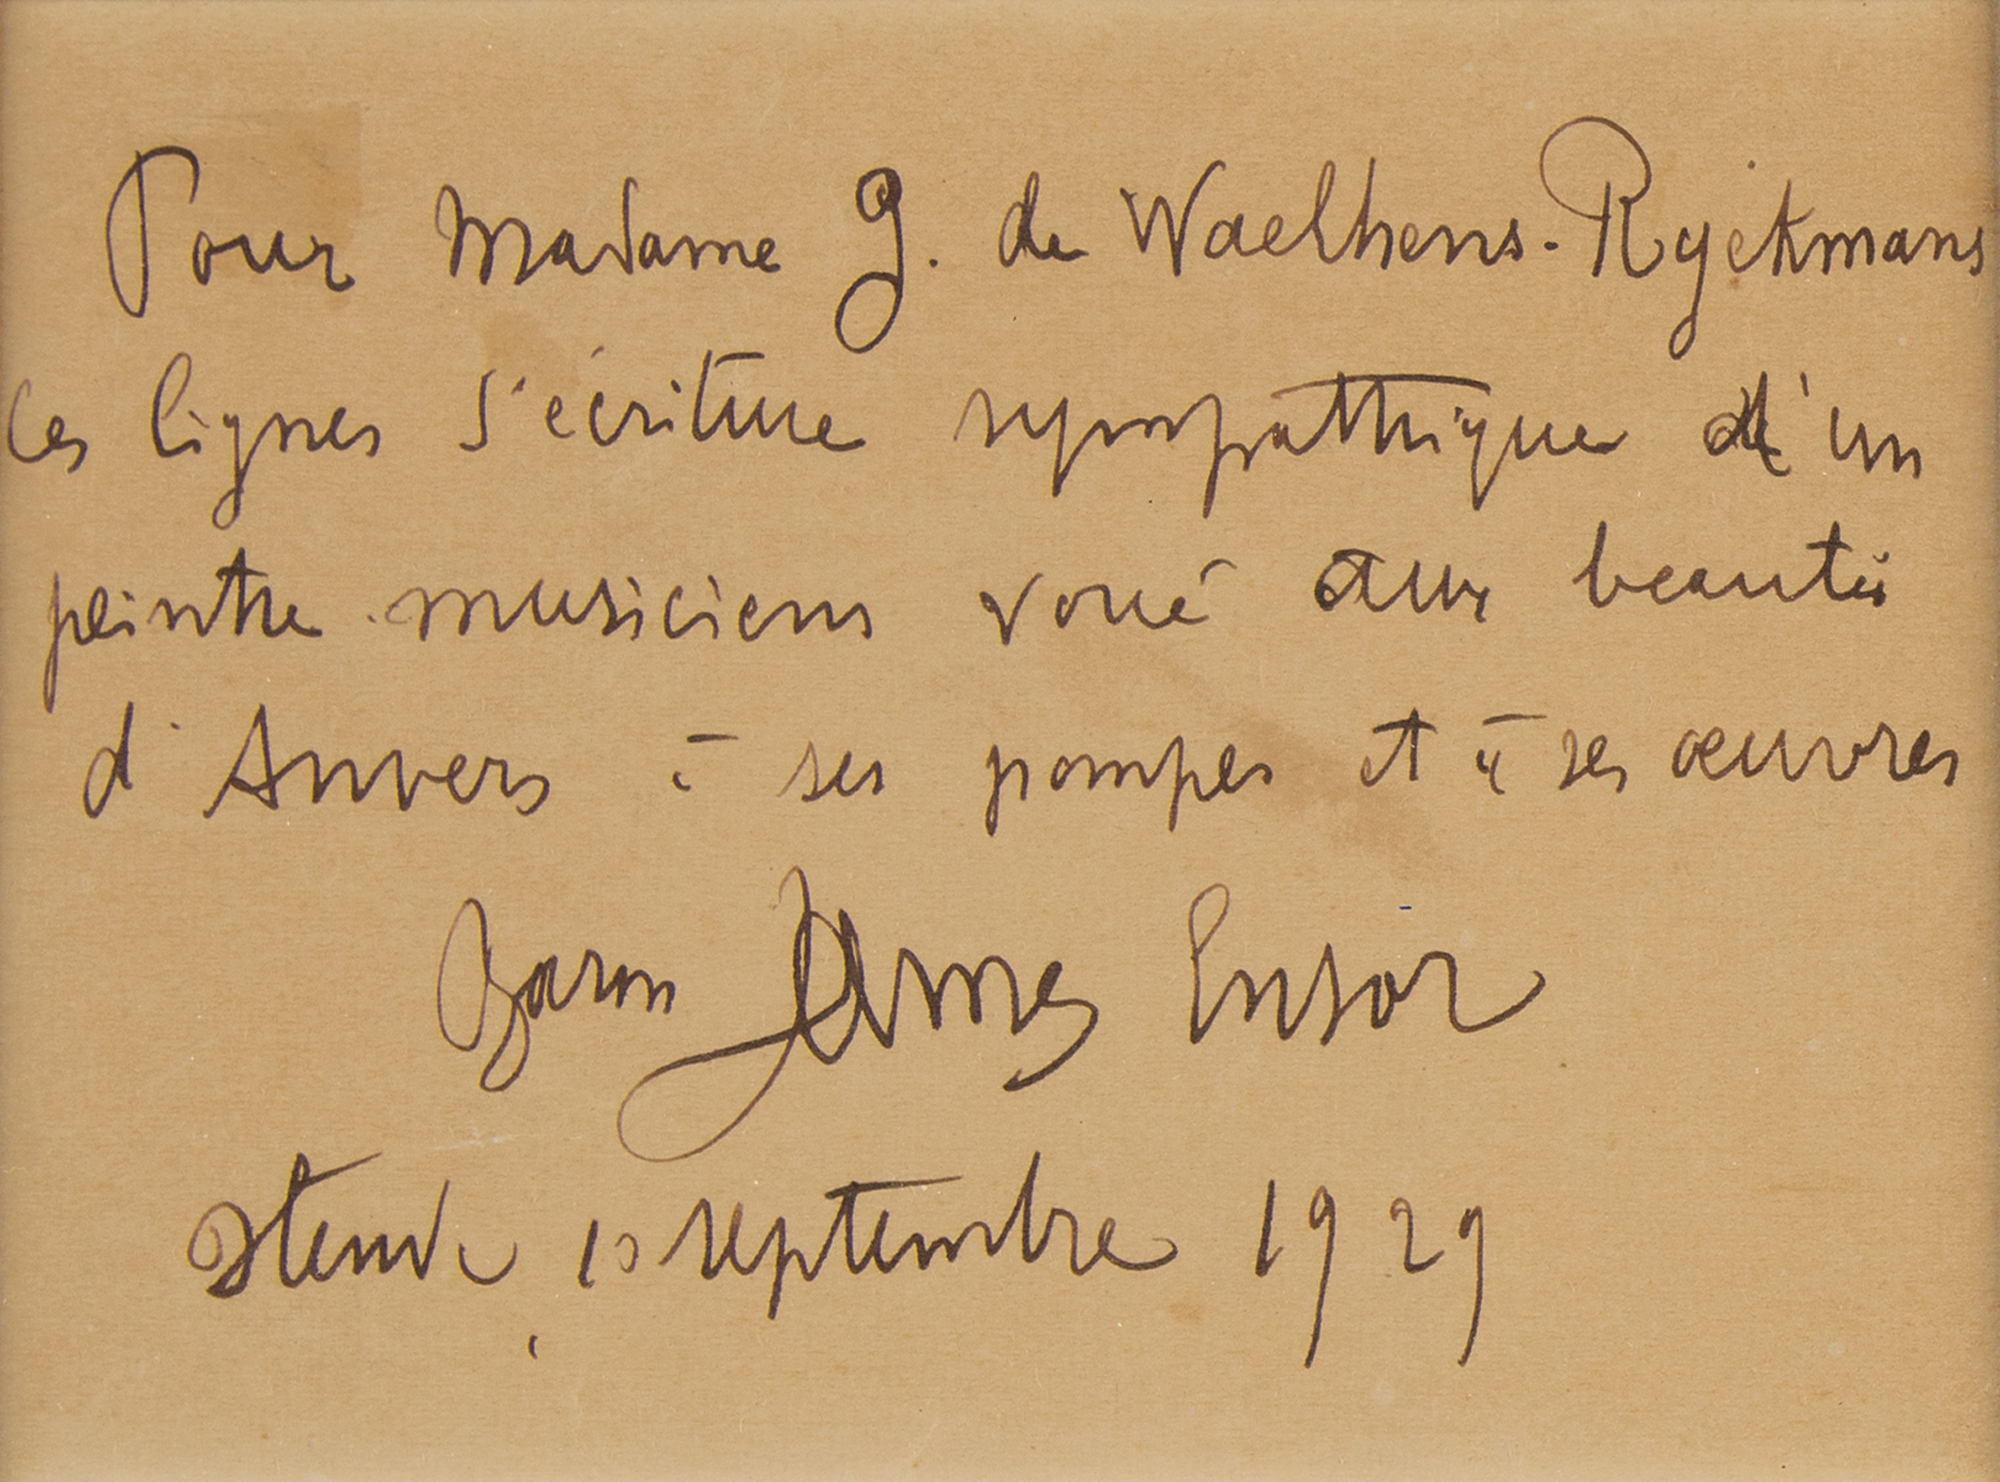 Pour Madame G. de Waelhens-Ryckmans
ces lignes d'écriture sympathique d'un
peintre musicien voué aux beautés
d'Anvers à ses pompes et à ses œuvres
Baron James Ensor
Ostende, 10 septembre 1929